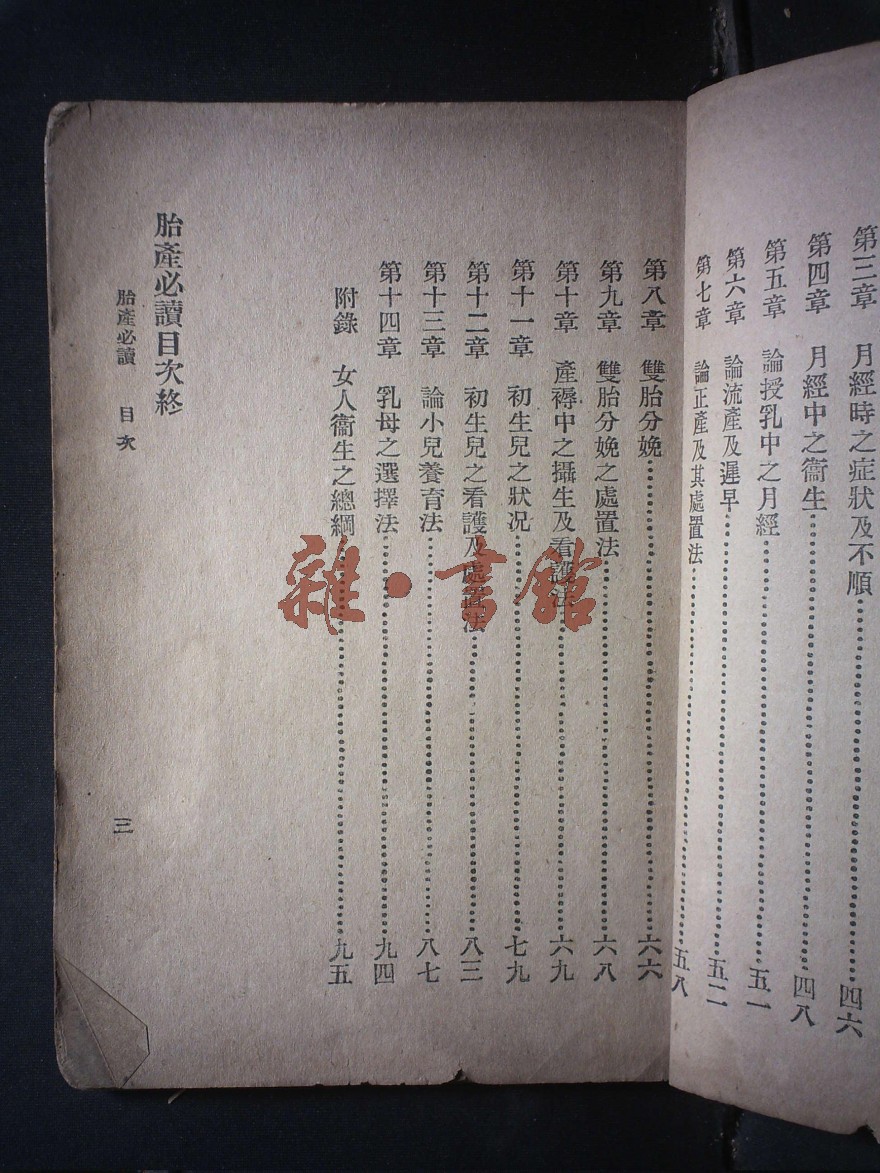 第三章　月經時之症狀及不順………四六
第四章　月經中之衞生………四八
第五章　論授乳中之月經………五一
第六章　論流產及遲早………五二
第七章　論正產及其處置法………五八
第八章　雙胎分娩………六六
第九章　雙胎分娩之處置法………六八
第十章　產褥中之攝生及看護法………六九
第十一章　初生兒之狀况………七九
第十二章　初生兒之看護及處置法………八三
第十三章　論小兒養育法………八七
第十四章　乳母之選擇法………九四
附錄　女人衞生之總綱………九五
胎產必讀目次終
胎產必讀　目次　三
雜·書館